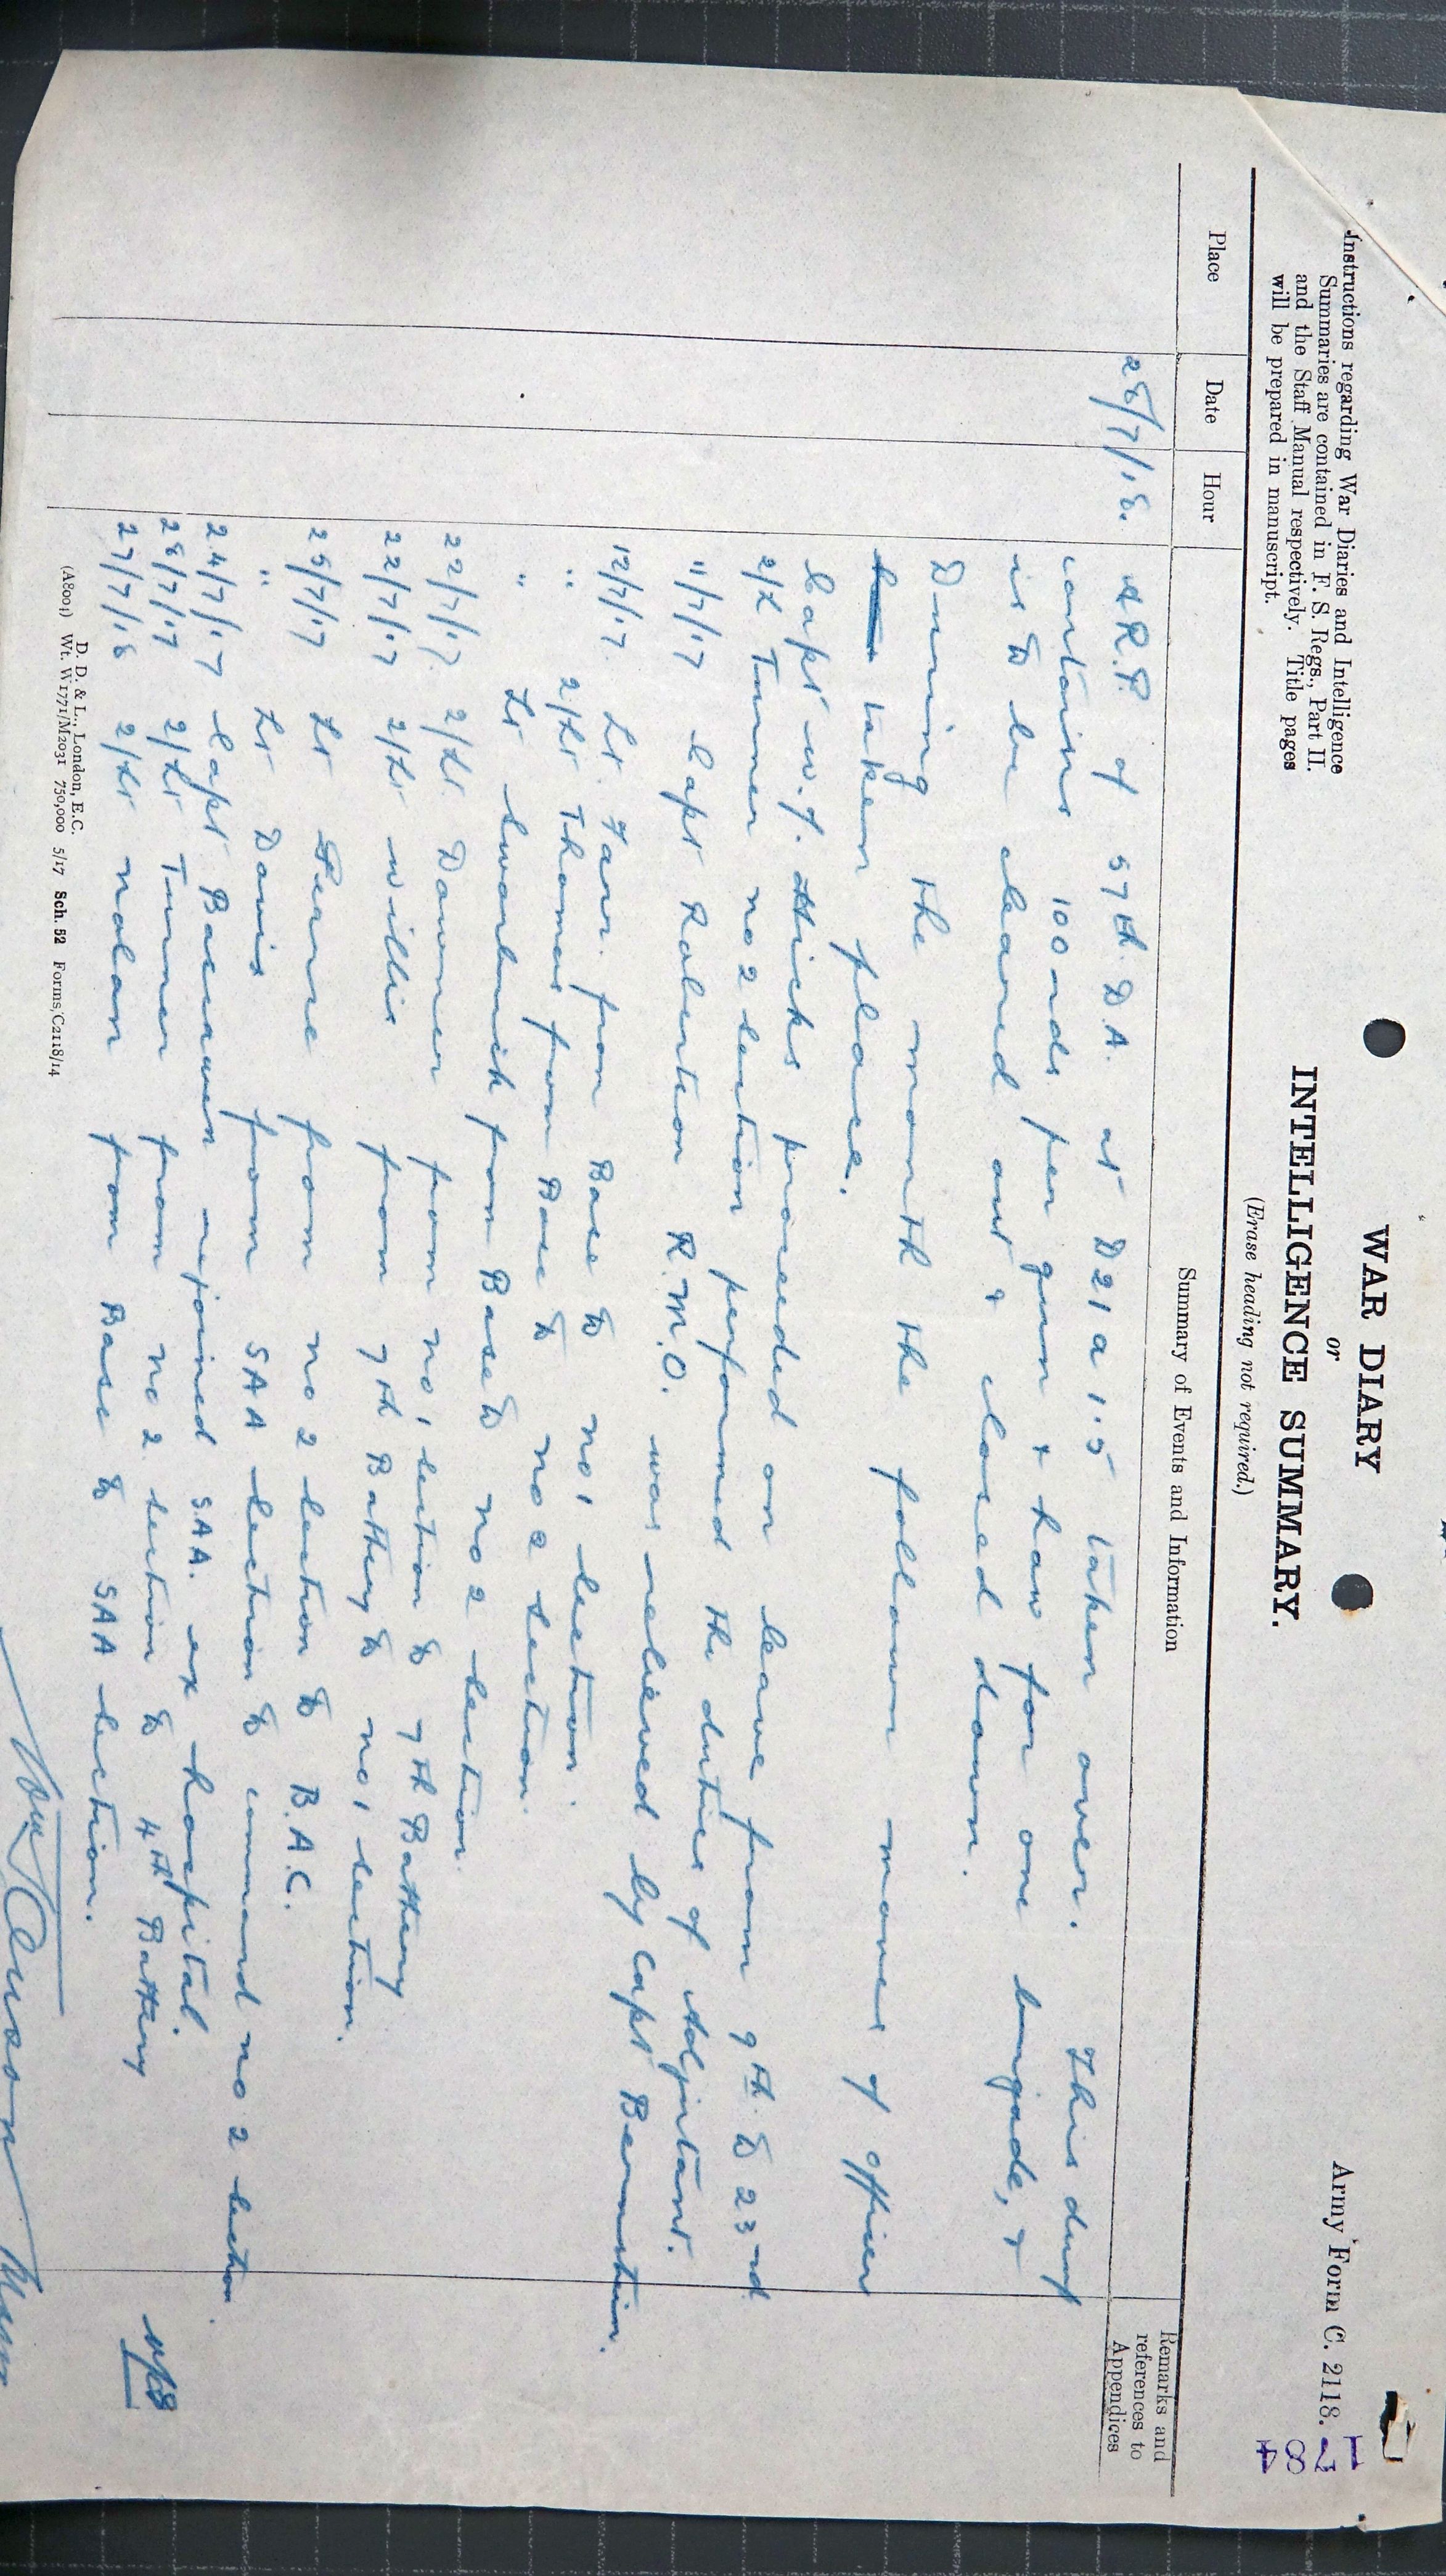 Army Form C. 2118.
1 784
WAR DIARY
or
INTELLIGENCE SUMMARY.
(Erase heading not required.)
Instructions regarding War Diaries and Intelligence
Summaries are contained in F. S. Regs., Part II.
and the Staff Manual respectively. Title pages
will be prepared in manuscript.
Place Date Hour Summary of Events and Information Remarks and references to Appendices
28/7/18. A.R.P. of 57th. D.A. at D21a1.5 taken over. This dump
contains 100 rds per gun & how for one brigade, &
is to be cleared out & closed down.
During the month the follown moves of officer
taken place.
Capt W.J. Hicks proceeded on leave from 9th. to 23rd.
2/Lt Turner no 2 section performed the duties of Adjutant.
11/7/17 Capt Robertson R.M.O. was relieved by Capt
12/7/17. Lt. Farr. from Base to No 1 section.
" 2/Lt Thomas from Base to no 2 section.
" Lt from Base to no 2 section.
22/7/17. 2/Lt. Downer from no 1 section to 7th Battery
22/7/17 2/Lt Willis from 7th Battery to no 1 section.
25/7/17 Lt from no 2 section to B.A.C.
" Lt Davis from SAA section to command no 2 section.
24/7/17 Capt rejoined S.A.A. ex hospital.
28/7/17 2/Lt Turner from no 2 section to 4th Battery
27/7/18 2/Lt Nolan from Base to SAA section.
D. D. & L., London, E.C.
(A8004) Wt. W1771/M2031 750,000 5/17 Sch. 52 Forms/C2118/14